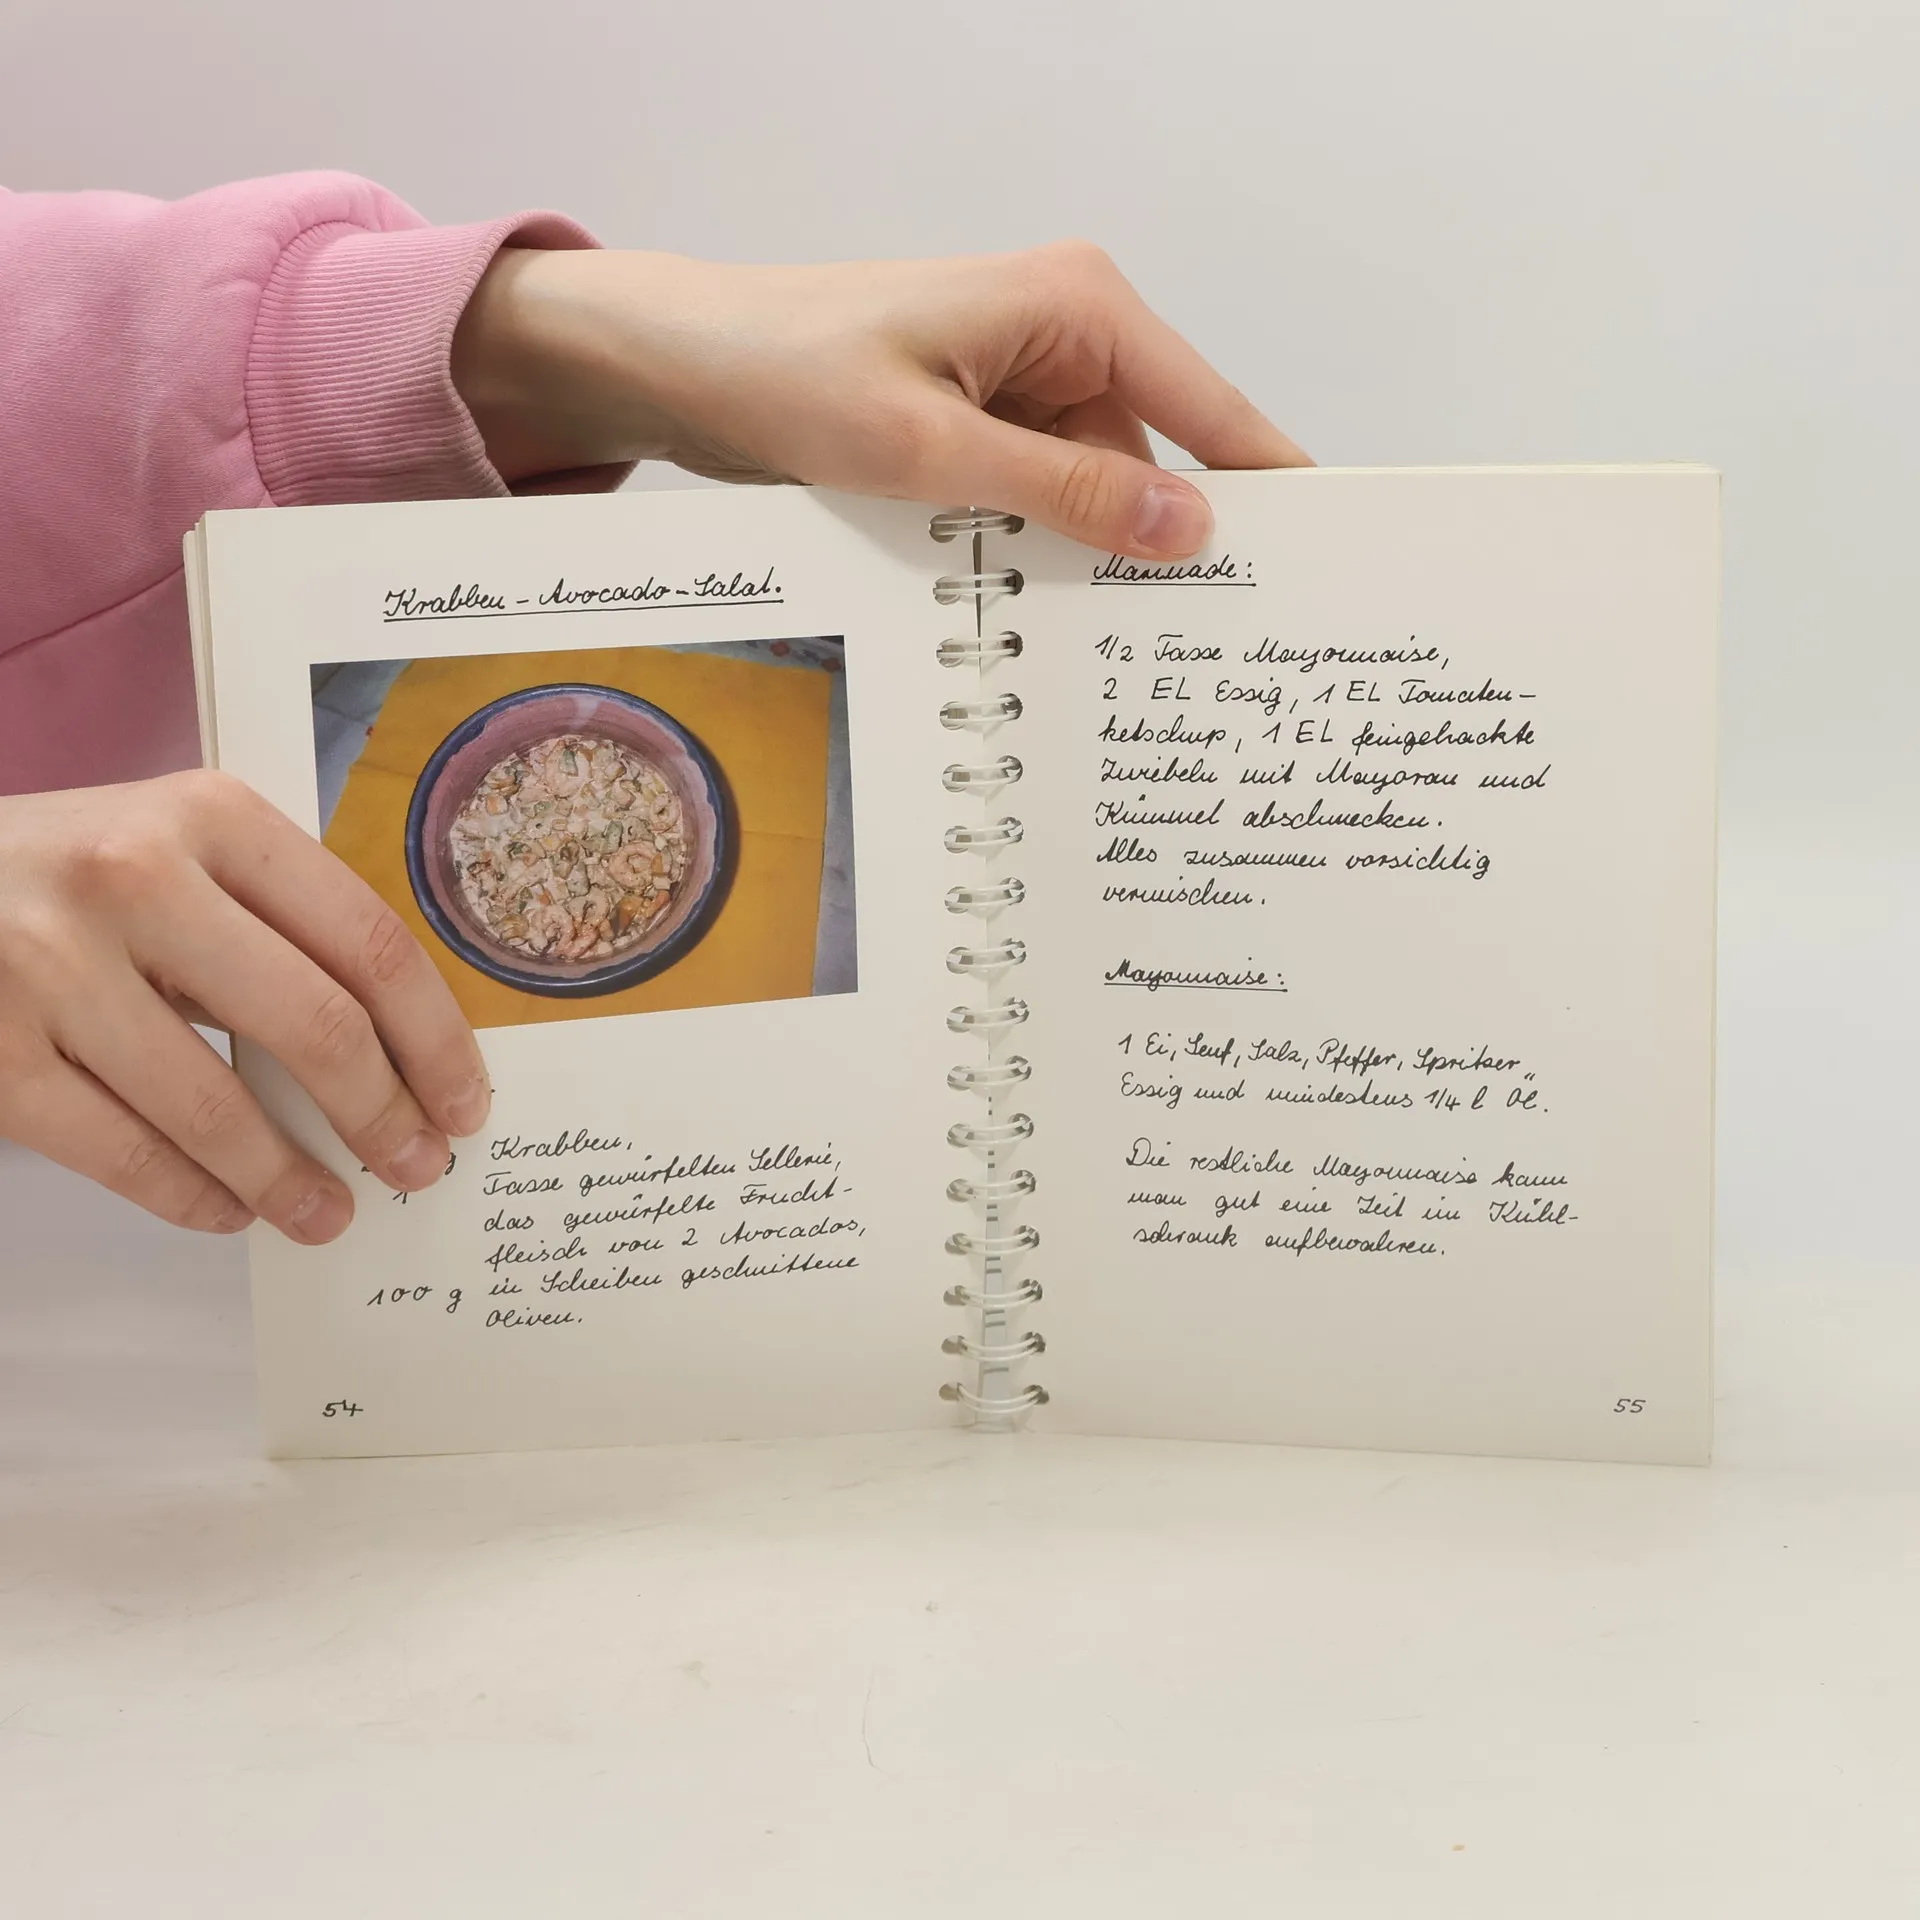 Krabben - Avocado - Salat.
g Krabben,
1 Tasse gewürfelten Sellerie,
das gewürfelte Frucht-
fleisch von 2 Avocados,
100 g in Scheiben geschnittene
Oliven.
54
Marinade:
1/2 Tasse Mayonnaise,
2 EL Essig, 1 EL Tomaten-
ketschup, 1 EL feingehackte
Zwiebeln mit Mayoran und
Kümmel abschmecken.
Alles zusammen vorsichtig
vermischen.
Mayonnaise:
1 Ei, Senf, Salz, Pfeffer, Spritzer
Essig und mindestens 1/4 l Öl.
Die restliche Mayonnaise kann
man gut eine Zeit im Kühl-
schrank aufbewahren.
55